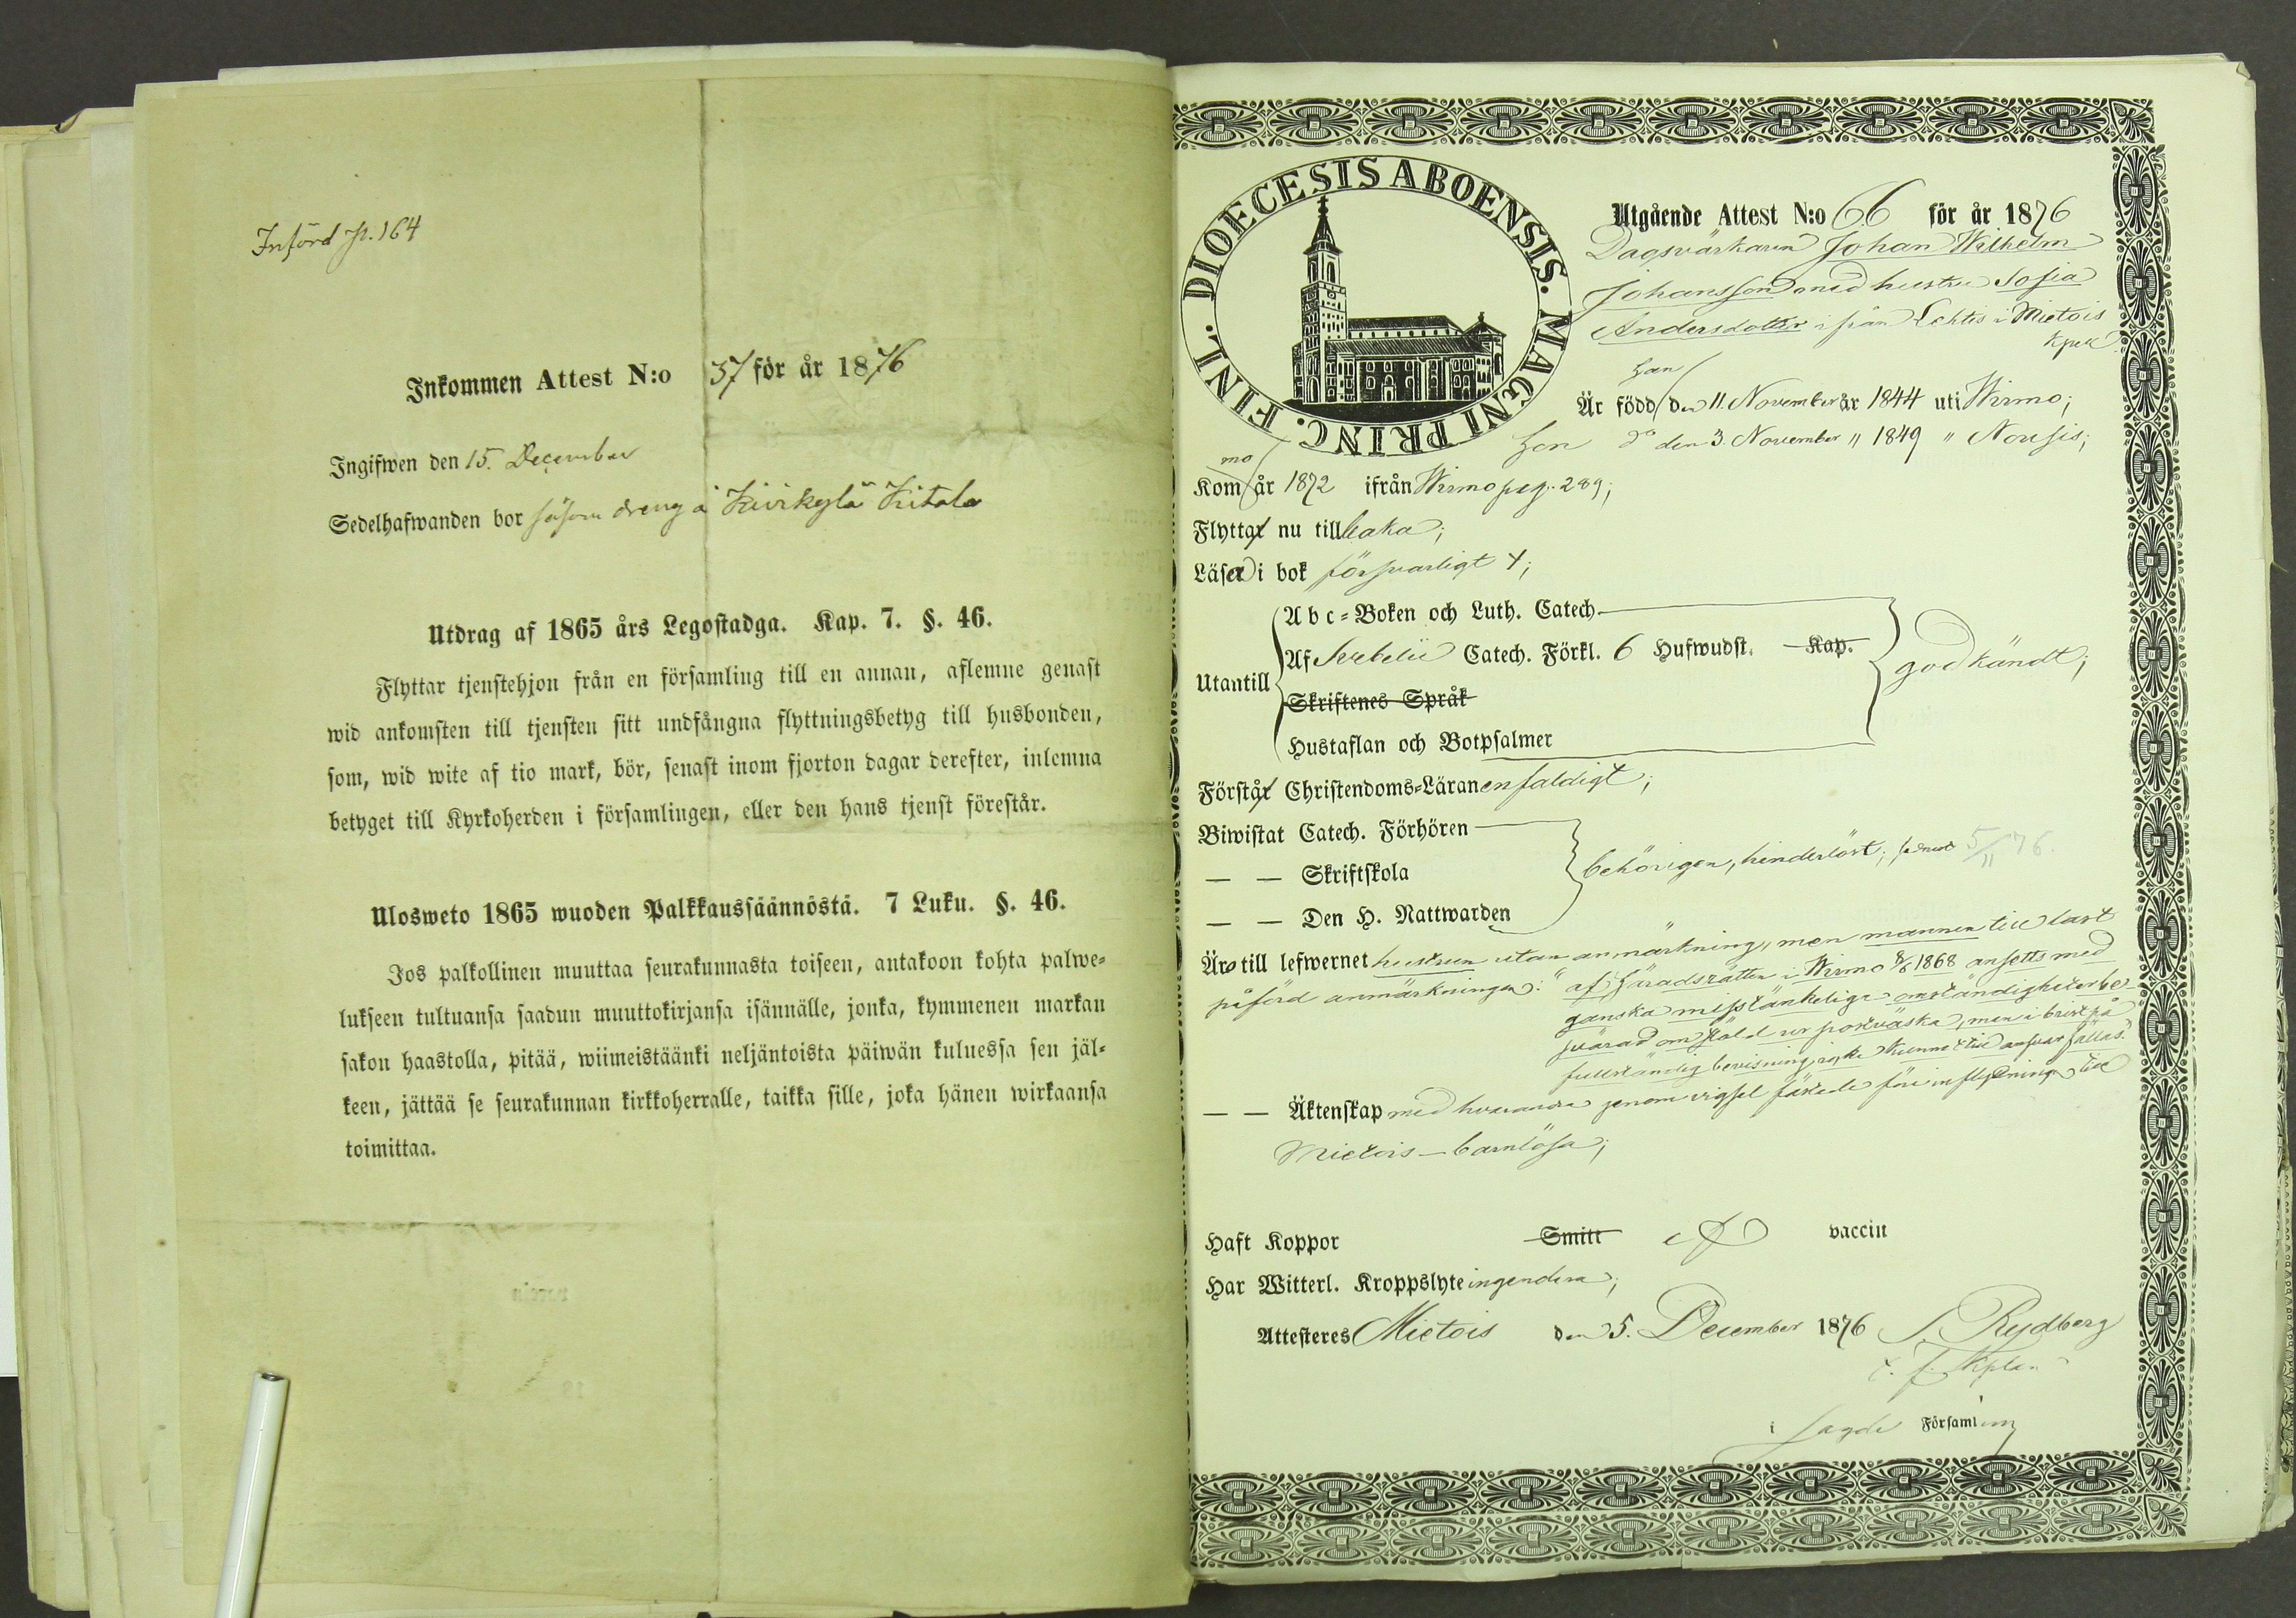 Införd p. 164
Inkommen Attest N:o 37 för år 1876
Ingifwen den 15. December
Sedelhafwanden bor såsom dreng å Kivikylä Kitala
Utdrag af 1865 års Legostadga. Kap. 7. §. 46.
Flyttar tjenstehjon från en församling till en annan, aflemne genast
wid ankomsten till tjensten sitt undfångna flyttningsbetyg till husbonden,
som, wid wite af tio mark, bör, senast inom fjorton dagar derefter, inlemna
betyget till Kyrkoherden i församlingen, eller den hans tjenst förestår.
Ulosweto 1865 wuoden Palkkaussäännöstä. 7 Luku. §. 46.
Jos palkollinen muuttaa seurakunnasta toiseen, antakoon kohta palwe=
lukseen tultuansa saadun muuttokirjansa isännälle, jonka, kymmenen markan
sakon haastolla, pitää, wiimeistäänki neljäntoista päiwän kuluessa sen jäl=
keen, jättää se seurakunnan kirkkoherralle, taikka sille, joka hänen wirkaansa
toimittaa.
FINL. DIOECESIS ABOENSIS. MAGNI PRINC.
Utgående Attest N:o 66 för år 1876
Dagsvärkaren Johan Wilhelm
Johansson med hustru Sofia
Andersdotter ifrån Lehtis i Mietois
Kpel.
han
Är född den 11. November år 1844 uti Wirmo;
hon do den 3. November " 1849 " Nousis;
mo
Kom år 1872 ifrån Wirmo pag. 289;
Flyttar nu tillbaka;
Läser i bok försvarligt;
Utantill
Abc=Boken och Luth. Catech.
Af Svebelii Catech. Förkl. 6 Hufwudst. Kap.
Skriftenes Språk
Hustaflan och Botpsalmer
godkändt;
Förstår Christendoms=Läran enfaldigt;
Biwistat Catech. Förhören
— — Skriftskola
— — Den H. Nattwarden
behörigen, hinderlöst; senast 5/11 76.
Äro till lefwernet hustrun utan anmärkning, men mannen till last
påförd anmärkningen: "af Häradsrätten i Wirmo 8/6 1868 ansetts med
ganska misstänkeliga omständigheter be-
svärad om stöld ur postväska, men i brist på
fullständig bevisning icke kunnat till ansvar fällas."
— — Äktenskap med hvarandra genom vigsel före inflyttningen till
Mietois – barnlösa;
Haft Koppor Smitt vaccin
Har Witterl. Kroppslyte ingendera;
Attesteres Mietois den 5. December 1876 S. Rydberg
t. f. Kplan
i sagde Församling